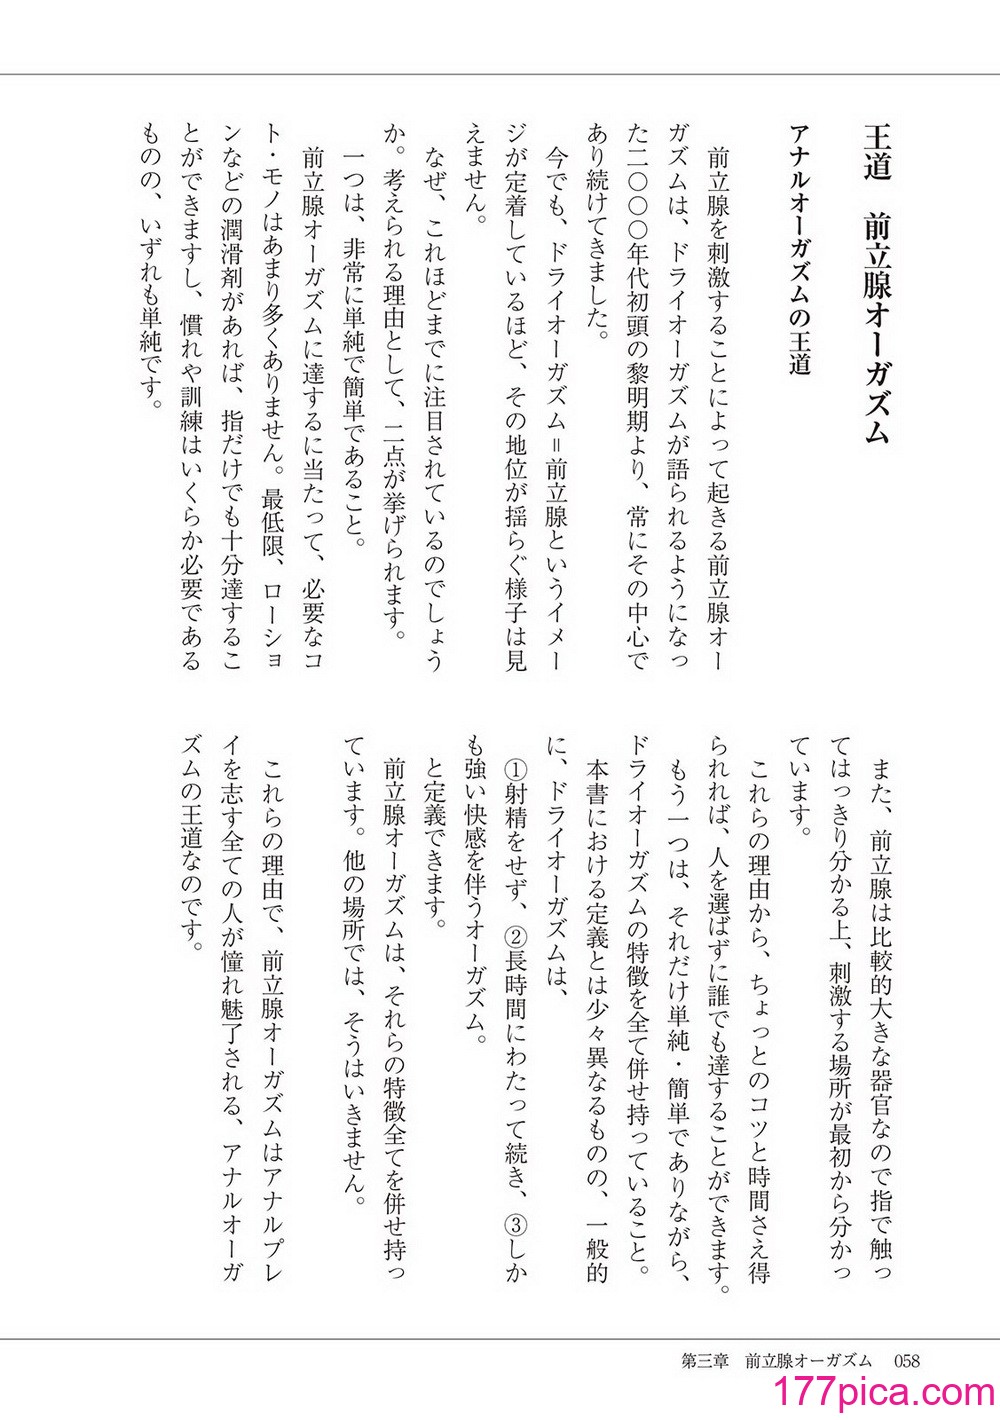 王道　前立腺オーガズム
アナルオーガズムの王道
　前立腺を刺激することによって起きる前立腺オー
ガズムは、ドライオーガズムが語られるようになっ
た二〇〇〇年代初頭の黎明期より、常にその中心で
あり続けてきました。
　今でも、ドライオーガズム＝前立腺というイメー
ジが定着しているほど、その地位が揺らぐ様子は見
えません。
　なぜ、これほどまでに注目されているのでしょう
か。考えられる理由として、二点が挙げられます。
　一つは、非常に単純で簡単であること。
　前立腺オーガズムに達するに当たって、必要なコ
ト・モノはあまり多くありません。最低限、ローショ
ンなどの潤滑剤があれば、指だけでも十分達するこ
とができますし、慣れや訓練はいくらか必要である
ものの、いずれも単純です。
　また、前立腺は比較的大きな器官なので指で触っ
てはっきり分かる上、刺激する場所が最初から分かっ
ています。
　これらの理由から、ちょっとのコツと時間さえ得
られれば、人を選ばずに誰でも達することができます。
　もう一つは、それだけ単純・簡単でありながら、
ドライオーガズムの特徴を全て併せ持っていること。
　本書における定義とは少々異なるものの、一般的
に、ドライオーガズムは、
　①射精をせず、②長時間にわたって続き、③しか
も強い快感を伴うオーガズム。
　と定義できます。
　前立腺オーガズムは、それらの特徴全てを併せ持っ
ています。他の場所では、そうはいきません。
　これらの理由で、前立腺オーガズムはアナルプレ
イを志す全ての人が憧れ魅了される、アナルオーガ
ズムの王道なのです。
第三章　前立腺オーガズム　058
177pica.com